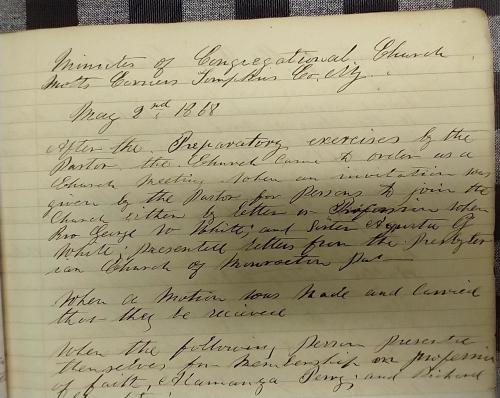 Minutes of Congregational Church
Motts Corners Tompkins Co, Ny.
May 2nd 1868
After the Preparatory exercises by the
Pastor the Church came to order as a
Church meeting when an invitation was
given by the Pastor for Persons to join the
Church either by letter or Profession when
Bro George W White; and Sister G
White; presented letters from the Presbyter
ian Church of
When a Motion was Made and Carried
that they be received
When the following person presented
themselves for Membership on profession
of faith, Perry; and Richard